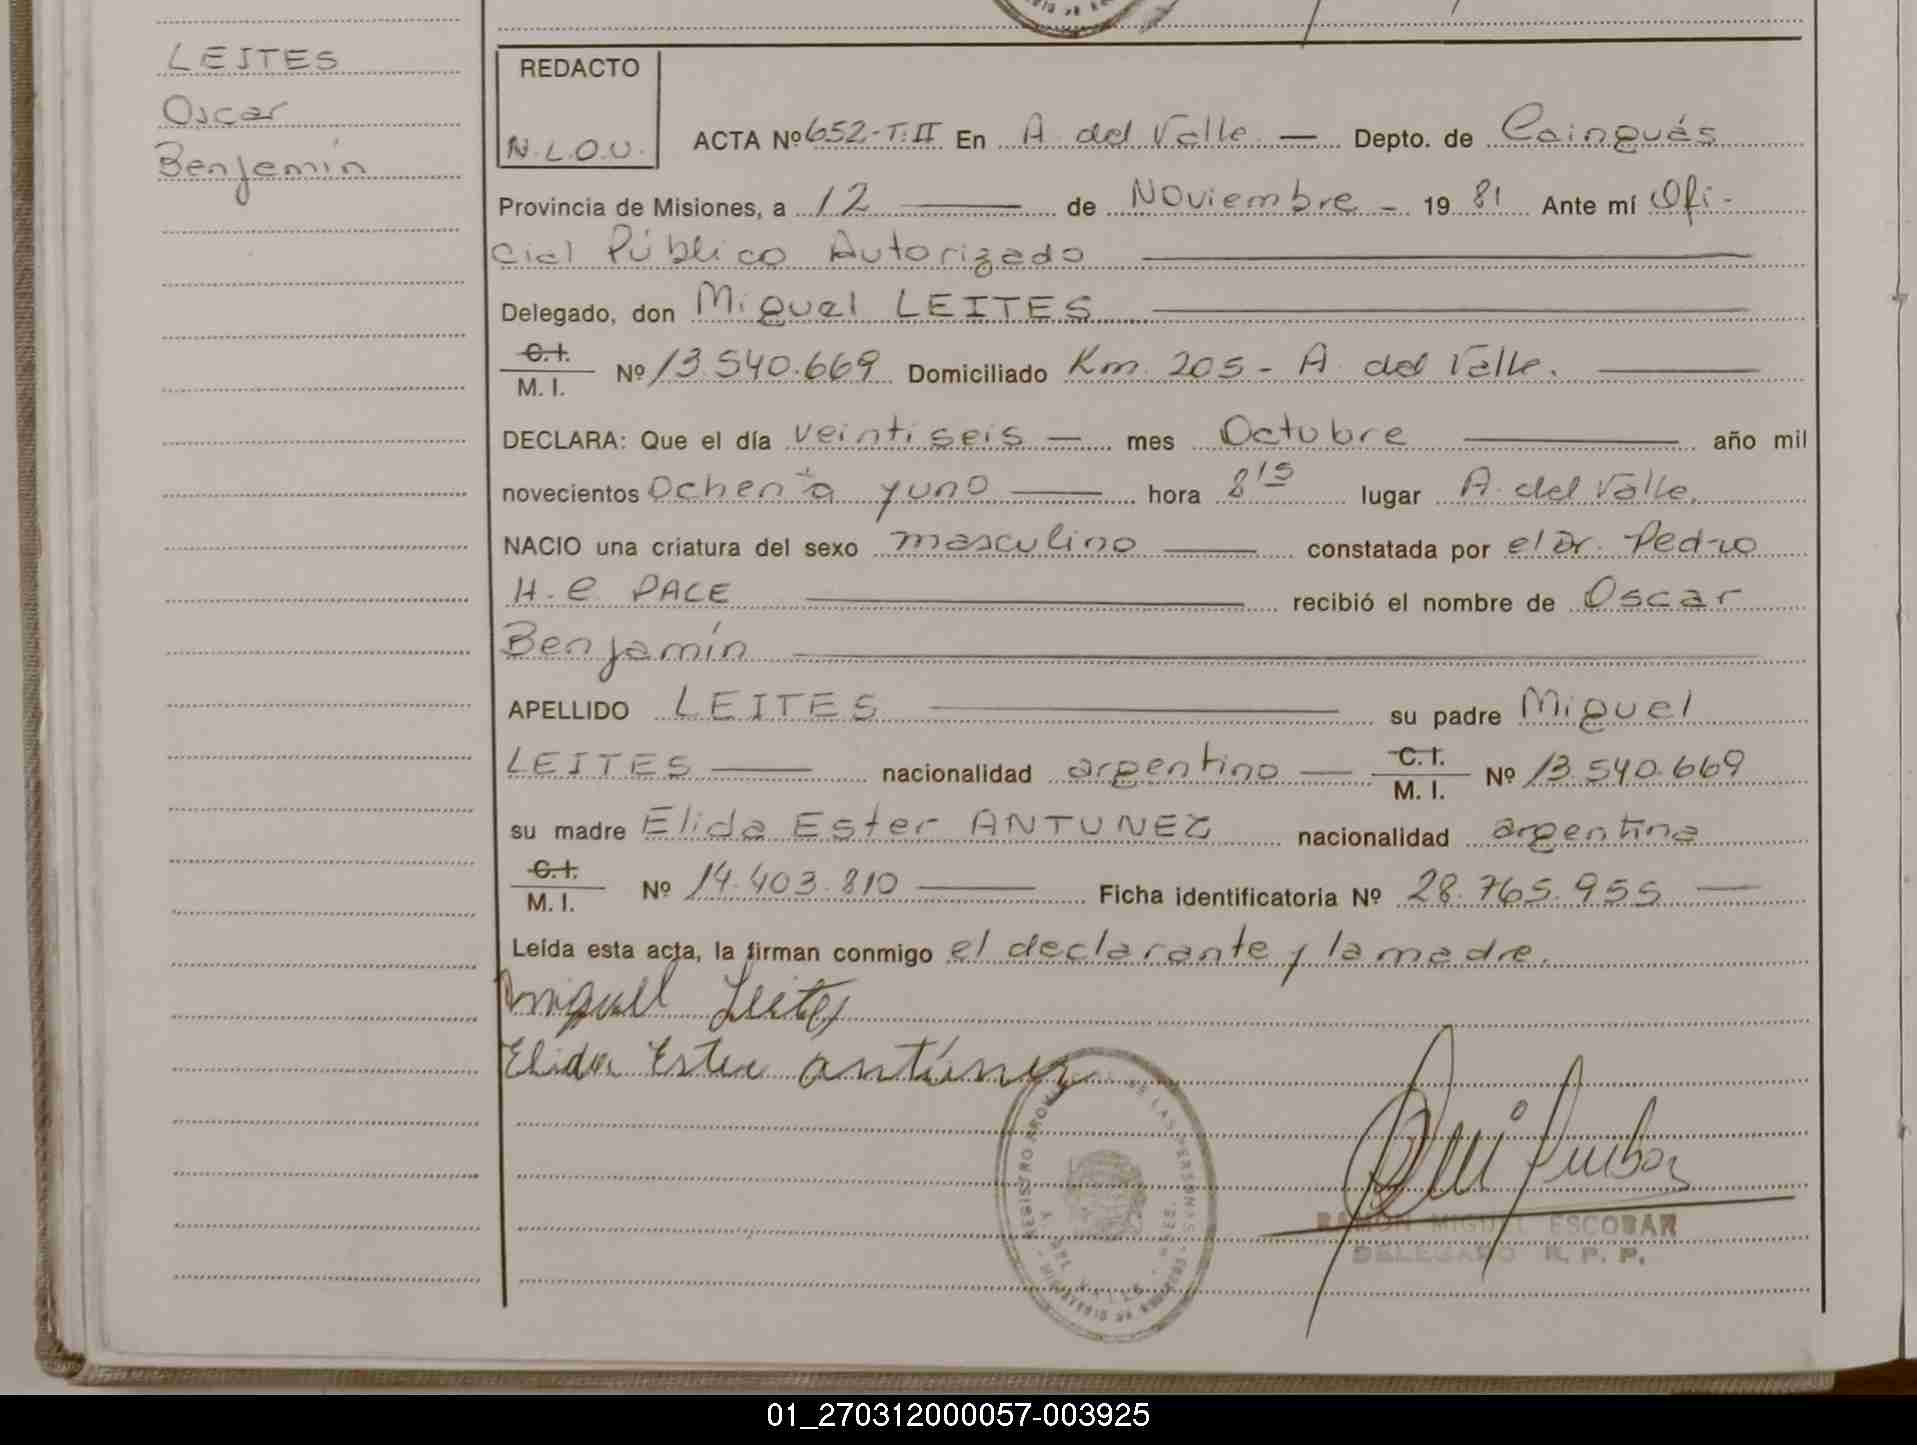 LEITES
Oscar
Benjamín
REDACTO
N.L.O.U.
ACTA Nº 652-T.II En A. del Valle. — Depto. de Cainguás
Provincia de Misiones, a 12 — de Noviembre - 19 81 Ante mí Ofi-
cial Público Autorizado —
Delegado, don Miguel LEITES —
C.I. M.I. Nº 13.540.669 Domiciliado Km. 205 - A. del Valle. —
DECLARA: Que el día veintiseis — mes Octubre — año mil
novecientos Ochenta y uno — hora 8 15 lugar A. del Valle.
NACIO una criatura del sexo masculino — constatada por el Dr. Pedro
H. C. PACE — recibió el nombre de Oscar
Benjamín —
APELLIDO LEITES — su padre Miguel
LEITES — nacionalidad argentino — C.I. M.I. Nº 13.540.669
su madre Elida Ester ANTUNEZ nacionalidad argentina
C.I. M.I. Nº 14.403.810 — Ficha identificatoria Nº 28.765.955 —
Leída esta acta, la firman conmigo el declarante y la madre.
Miguel Leites
Elida Ester Antúnez
REGISTRO PROV. DE LAS PERSONAS
A. DEL VALLE
RAMON MIGUEL ESCOBAR
DELEGADO R. P. P.
01_270312000057-003925